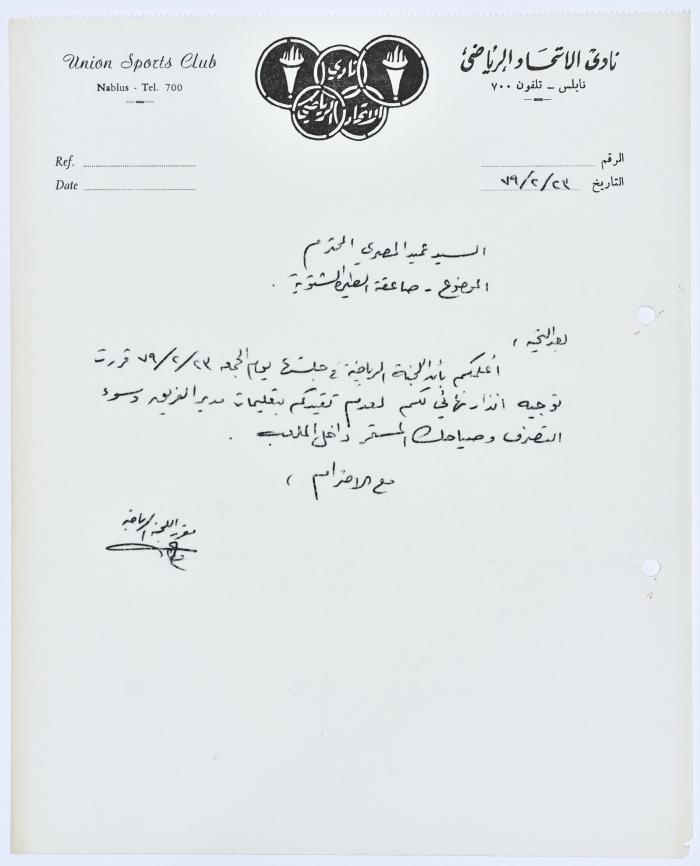 Union Sports Club
Nablus - Tel. 700
نادي الاتحاد الرياضي
نادي الاتحاد الرياضي
نابلس - تلفون ٧٠٠
Ref.
Date
الرقم
التاريخ ٧٩/٢/٢٣
السيد عميد المصري المحترم
الموضوع -
بعد التحية ،
أعلمكم بأن اللجنة الرياضية في جلستها يوم الجمعة ٧٩/٢/٢٣ قررت
توجيه انذار نهائي لكم لعدم تقيدكم بتعليمات مدير الفريق وسوء
التصرف وصياحك المستمر داخل الملعب .
مع الاحترام ،
مقرر اللجنة الرياضية